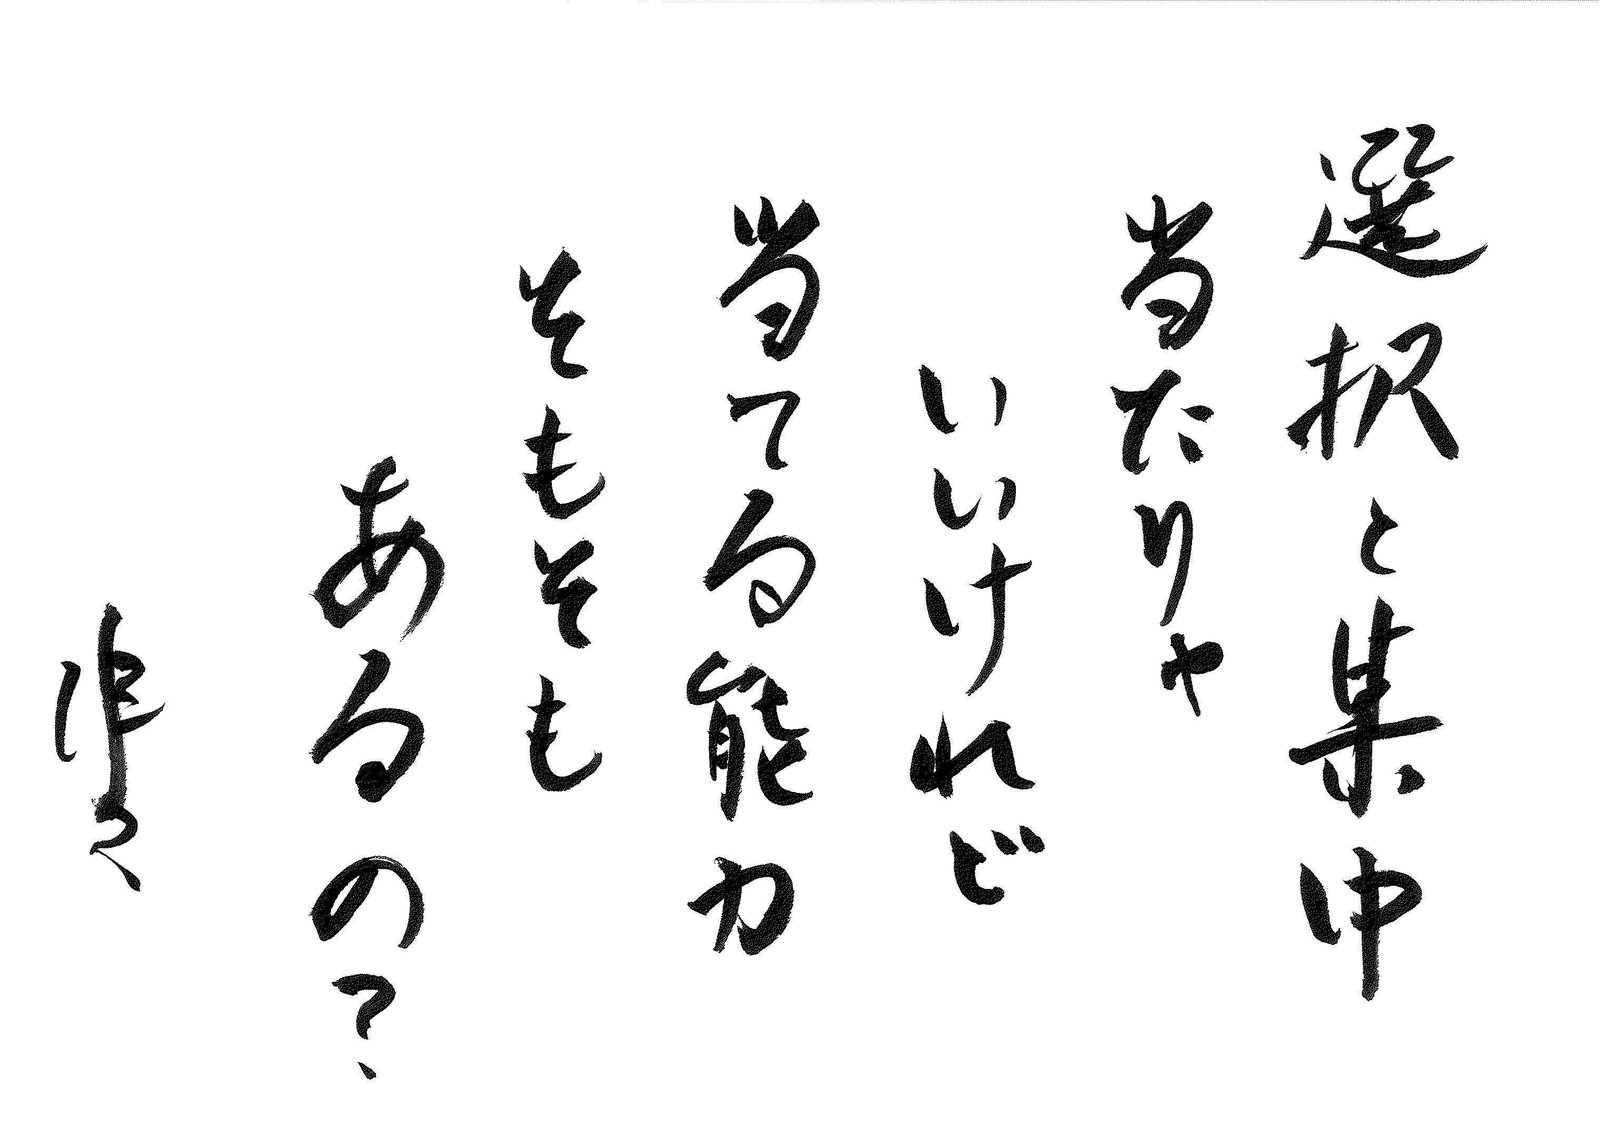 選択と集中
当たりゃ
いいけれど
当てる能力
そもそも
あるの?